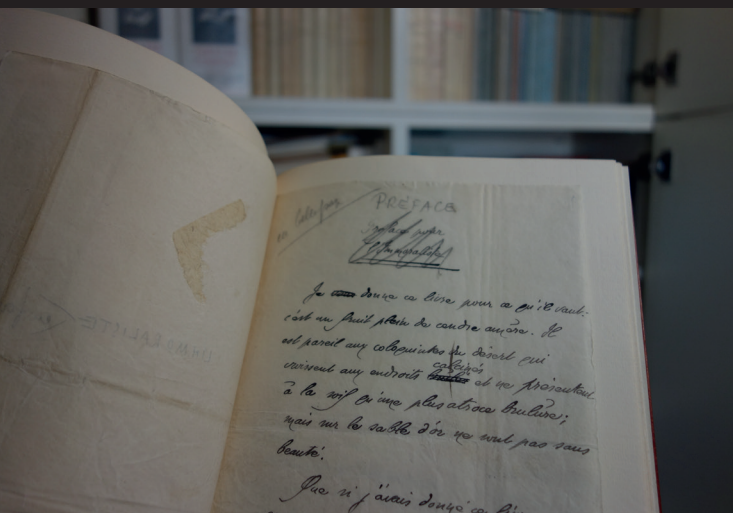 PRÉFACE
Préface pour
Je donne ce livre pour ce qu'il vaut.
c'est un fruit plein de cendre amère. Il
est pareil aux coloquintes du désert qui
calcinés
croissent aux endroits et ne présentent
à la soif qu'une plus atroce brûlure;
mais sur le sable d'or ne sont pas sans
beauté.
Que si j'avais donné ce